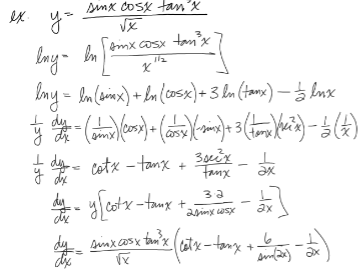 ex. y = sinx cosx tan³x / √x
lny = ln [ sinx cosx tan³x / x^1/2 ]
lny = ln(sinx) + ln(cosx) + 3 ln(tanx) − 1/2 lnx
1/y dy/dx = (1/sinx)(cosx) + (1/cosx)(−sinx) + 3(1/tanx)(sec²x) − 1/2(1/x)
1/y dy/dx = cotx − tanx + 3sec²x/tanx − 1/2x
dy/dx = y[cotx − tanx + 3·2/2sinx cosx − 1/2x]
dy/dx = sinx cosx tan³x/√x (cotx − tanx + 6/sin(2x) − 1/2x)